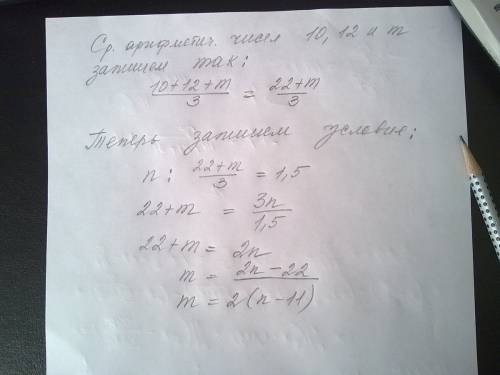 Ср. арифметич. чисел 10, 12 и m
запишем так:
(10+12+m)/3 = (22+m)/3
Теперь запишем условие:
n : (22+m)/3 = 1,5
22+m = 3n/1,5
22+m = 2n
m = 2n-22
m = 2(n-11)